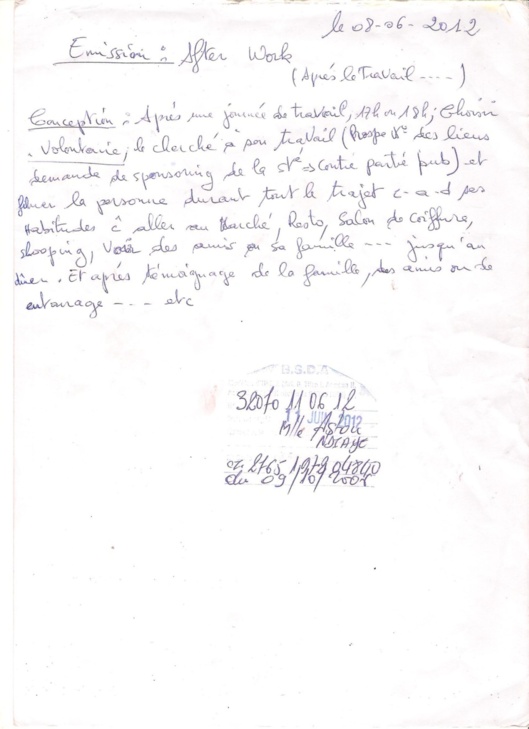 le 08-06-2012
Emission : After Work
(Après le Travail ----)
Conception : Après une journée de travail, 17h ou 18h ; Choisir
. Volontaire ; le cherché à son travail (Prospe des lieux
demande de sponsoring de la sté contie partie pub) et
filmer la personne durant tout le trajet c-a-d ses
Habitudes à aller au Marché, Resto, Salon de Coiffure,
shooping, Voir des amis ou sa famille --- jusqu'au
diner. Et après témoignage de la famille, des amis ou de
entourage --- etc
B.S.D.A
32070 11 06 12
11 JUI 2012
Mlle Astou
NDIAYE
2765 1979 04840
du 09/10/2007